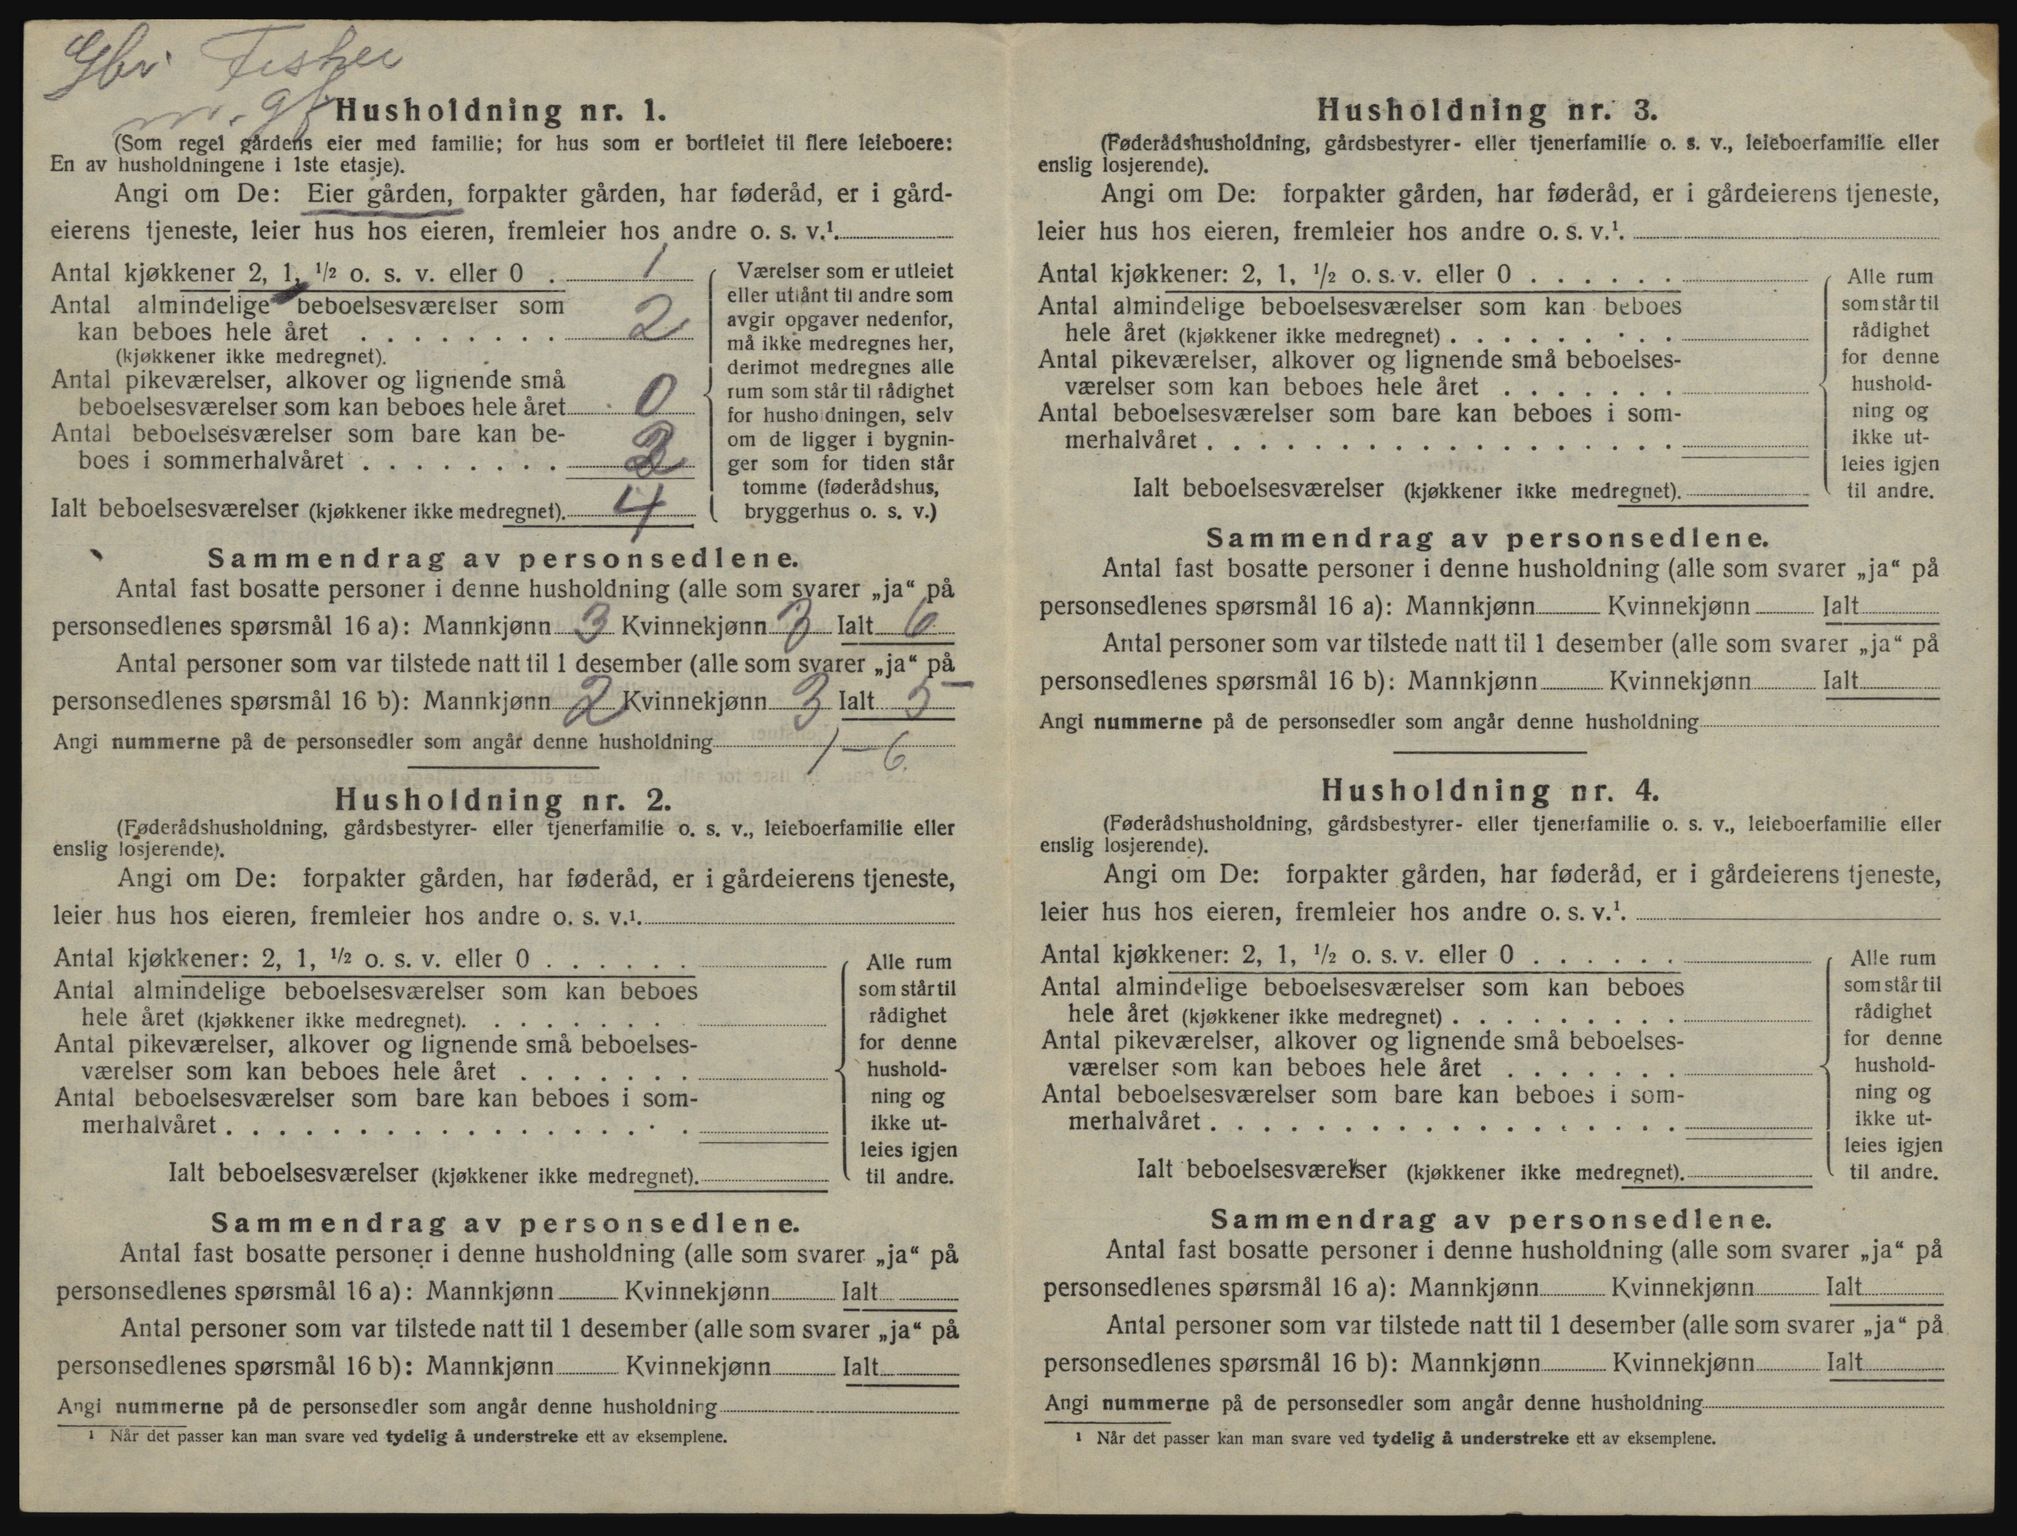 Gbr. Fisker
m. gf.
Husholdning nr. 1.
(Som regel gårdens eier med familie; for hus som er bortleiet til flere leieboere:
En av husholdningene i 1ste etasje).
Angi om De: Eier gården, forpakter gården, har føderåd, er i gård-
eierens tjeneste, leier hus hos eieren, fremleier hos andre o. s. v.¹.
Antal kjøkkener 2, 1, ¹/₂ o. s. v. eller 0 . 1
Antal almindelige beboelsesværelser som
kan beboes hele året . . . . . . . . 2
(kjøkkener ikke medregnet).
Antal pikeværelser, alkover og lignende små
beboelsesværelser som kan beboes hele året 0
Antal beboelsesværelser som bare kan be-
boes i sommerhalvåret . . . . . . . . 2
Ialt beboelsesværelser (kjøkkener ikke medregnet). 4
Værelser som er utleiet
eller utlånt til andre som
avgir opgaver nedenfor,
må ikke medregnes her,
derimot medregnes alle
rum som står til rådighet
for husholdningen, selv
om de ligger i bygnin-
ger som for tiden står
tomme (føderådshus,
bryggerhus o. s. v.)
Sammendrag av personsedlene.
Antal fast bosatte personer i denne husholdning (alle som svarer „ja“ på
personsedlenes spørsmål 16 a): Mannkjønn 3 Kvinnekjønn 3 Ialt 6
Antal personer som var tilstede natt til 1 desember (alle som svarer „ja“ på
personsedlenes spørsmål 16 b): Mannkjønn 2 Kvinnekjønn 3 Ialt 5
Angi nummerne på de personsedler som angår denne husholdning 1 – 6
Husholdning nr. 2.
(Føderådshusholdning, gårdsbestyrer- eller tjenerfamilie o. s. v., leieboerfamilie eller
enslig losjerende).
Angi om De: forpakter gården, har føderåd, er i gårdeierens tjeneste,
leier hus hos eieren, fremleier hos andre o. s. v.¹.
Antal kjøkkener: 2, 1, ¹/₂ o. s. v. eller 0 . . . . . .
Antal almindelige beboelsesværelser som kan beboes
hele året (kjøkkener ikke medregnet). . . . . . . . .
Antal pikeværelser, alkover og lignende små beboelses-
værelser som kan beboes hele året . . . . . . .
Antal beboelsesværelser som bare kan beboes i som-
merhalvåret . . . . . . . . . . . . . . . . . .
Ialt beboelsesværelser (kjøkkener ikke medregnet).
Alle rum
som står til
rådighet
for denne
hushold-
ning og
ikke ut-
leies igjen
til andre.
Sammendrag av personsedlene.
Antal fast bosatte personer i denne husholdning (alle som svarer „ja“ på
personsedlenes spørsmål 16 a): Mannkjønn Kvinnekjønn Ialt
Antal personer som var tilstede natt til 1 desember (alle som svarer „ja“ på
personsedlenes spørsmål 16 b): Mannkjønn Kvinnekjønn Ialt
Angi nummerne på de personsedler som angår denne husholdning
¹ Når det passer kan man svare ved tydelig å understreke ett av eksemplene.
Husholdning nr. 3.
(Føderådshusholdning, gårdsbestyrer- eller tjenerfamilie o. s. v., leieboerfamilie eller
enslig losjerende).
Angi om De: forpakter gården, har føderåd, er i gårdeierens tjeneste,
leier hus hos eieren, fremleier hos andre o. s. v.¹.
Antal kjøkkener: 2, 1, ¹/₂ o. s. v. eller 0 . . . . . .
Antal almindelige beboelsesværelser som kan beboes
hele året (kjøkkener ikke medregnet) . . . . . . . . .
Antal pikeværelser, alkover og lignende små beboelses-
værelser som kan beboes hele året . . . . . . .
Antal beboelsesværelser som bare kan beboes i som-
merhalvåret . . . . . . . . . . . . . . . . . .
Ialt beboelsesværelser (kjøkkener ikke medregnet).
Alle rum
som står til
rådighet
for denne
hushold-
ning og
ikke ut-
leies igjen
til andre.
Sammendrag av personsedlene.
Antal fast bosatte personer i denne husholdning (alle som svarer „ja“ på
personsedlenes spørsmål 16 a): Mannkjønn Kvinnekjønn Ialt
Antal personer som var tilstede natt til 1 desember (alle som svarer „ja“ på
personsedlenes spørsmål 16 b): Mannkjønn Kvinnekjønn Ialt
Angi nummerne på de personsedler som angår denne husholdning
Husholdning nr. 4.
(Føderådshusholdning, gårdsbestyrer- eller tjenerfamilie o. s. v., leieboerfamilie eller
enslig losjerende).
Angi om De: forpakter gården, har føderåd, er i gårdeierens tjeneste,
leier hus hos eieren, fremleier hos andre o. s. v.¹.
Antal kjøkkener: 2, 1, ¹/₂ o. s. v. eller 0 . . . . . .
Antal almindelige beboelsesværelser som kan beboes
hele året (kjøkkener ikke medregnet) . . . . . . . . .
Antal pikeværelser, alkover og lignende små beboelses-
værelser som kan beboes hele året . . . . . . .
Antal beboelsesværelser som bare kan beboes i som-
merhalvåret . . . . . . . . . . . . . . . . . .
Ialt beboelsesværelser (kjøkkener ikke medregnet).
Alle rum
som står til
rådighet
for denne
hushold-
ning og
ikke ut-
leies igjen
til andre.
Sammendrag av personsedlene.
Antal fast bosatte personer i denne husholdning (alle som svarer „ja“ på
personsedlenes spørsmål 16 a): Mannkjønn Kvinnekjønn Ialt
Antal personer som var tilstede natt til 1 desember (alle som svarer „ja“ på
personsedlenes spørsmål 16 b): Mannkjønn Kvinnekjønn Ialt
Angi nummerne på de personsedler som angår denne husholdning
¹ Når det passer kan man svare ved tydelig å understreke ett av eksemplene.